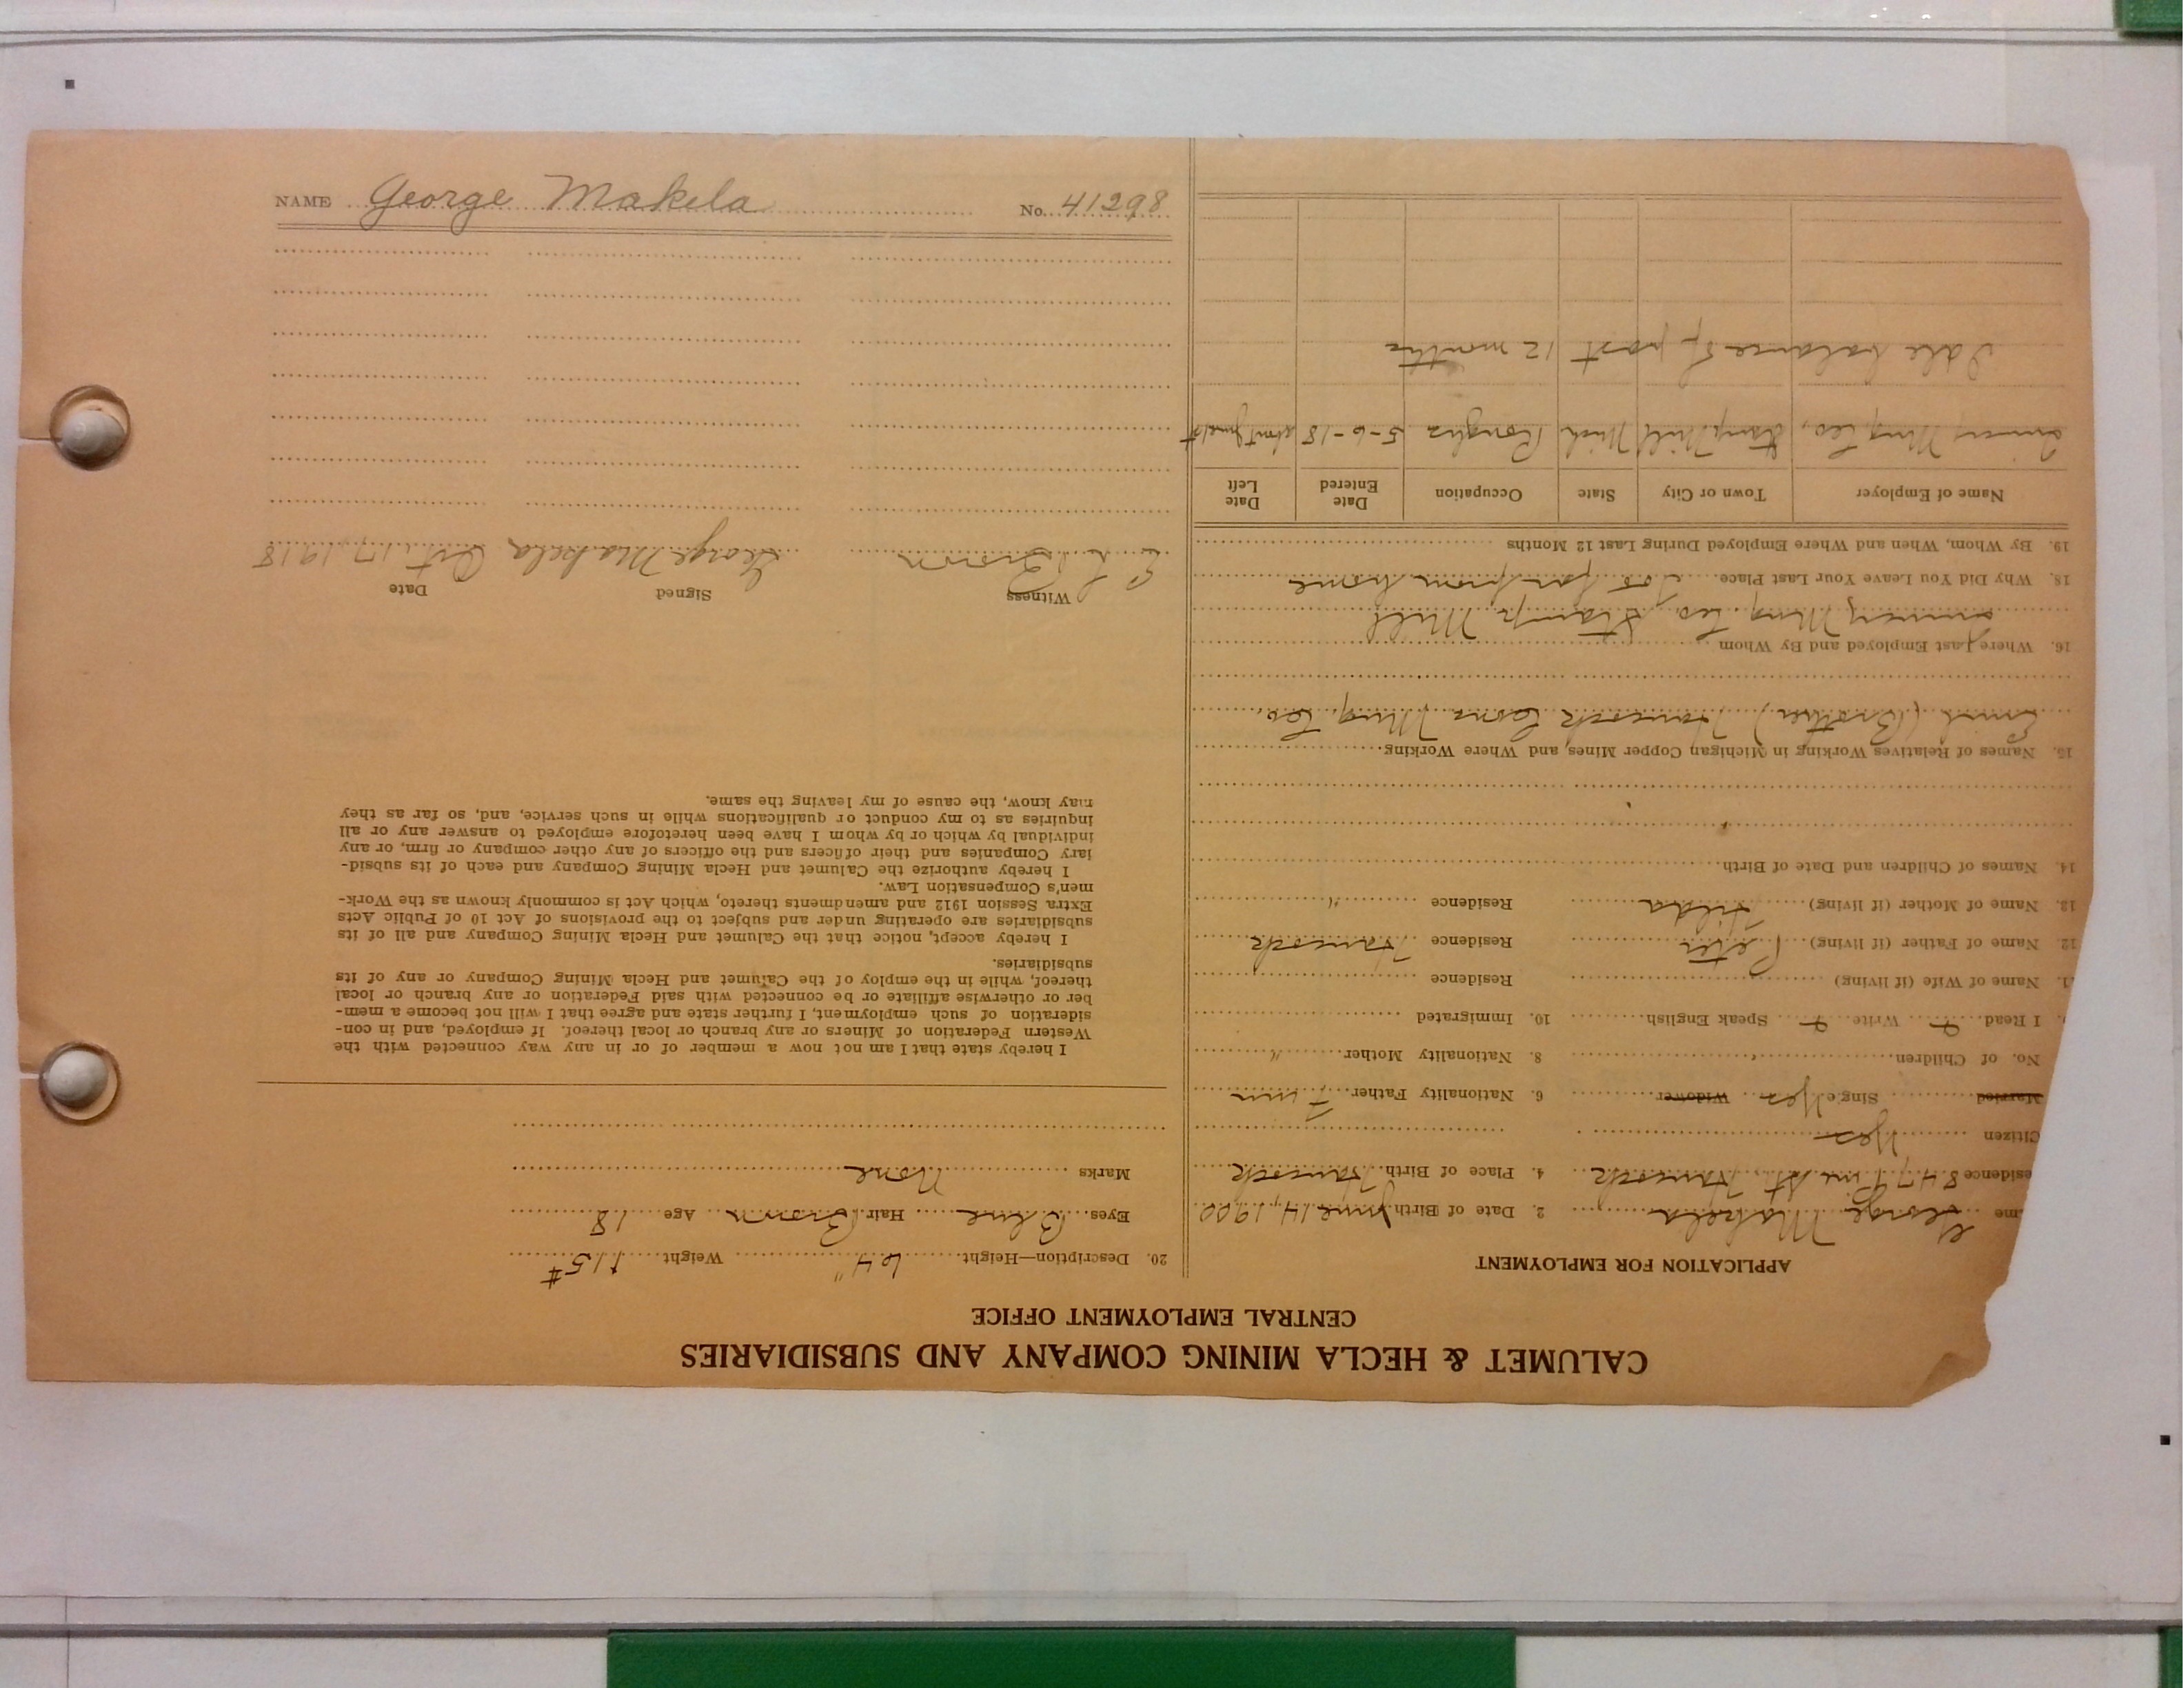 CALUMET & HECLA MINING COMPANY AND SUBSIDIARIES
CENTRAL EMPLOYMENT OFFICE
APPLICATION FOR EMPLOYMENT
me George Makela 2. Date of Birth June 14, 1900
esidence 847 Pine St., Hancock 4. Place of Birth Hancock
Citizen Yes
Married Single Yes Widower 6. Nationality Father Finn
No. of Children 8. Nationality Mother "
I Read Write Speak English 10. Immigrated
1. Name of Wife (if living) Residence
12. Name of Father (if living) Peter Residence Hancock
13. Name of Mother (if living) Hilda Residence "
14. Names of Children and Date of Birth
15. Names of Relatives Working in Michigan Copper Mines, and Where Working
Emil (Brother) Hancock Cons Mng. Co.
16. Where Last Employed and By Whom
Mng. Co. Stamp Mill
18. Why Did You Leave Your Last Place Too far from home
19. By Whom, When and Where Employed During Last 12 Months
Name of Employer Town or City State Occupation Date Entered Date Left
Mng Co, Stamp Mill Mich 5-6-18
Idle balance of past 12 months
20. Description—Height 64" Weight 115#
Eyes Blue Hair Brown Age 18
Marks None
I hereby state that I am not now a member of or in any way connected with the
Western Federation of Miners or any branch or local thereof. If employed, and in con-
sideration of such employment, I further state and agree that I will not become a mem-
ber or otherwise affiliate or be connected with said Federation or any branch or local
thereof, while in the employ of the Calumet and Hecla Mining Company or any of its
subsidiaries.
I hereby accept, notice that the Calumet and Hecla Mining Company and all of its
subsidiaries are operating under and subject to the provisions of Act 10 of Public Acts
Extra Session 1912 and amendments thereto, which Act is commonly known as the Work-
men's Compensation Law.
I hereby authorize the Calumet and Hecla Mining Company and each of its subsid-
iary Companies and their officers and the officers of any other company or firm, or any
individual by which or by whom I have been heretofore employed to answer any or all
inquiries as to my conduct or qualifications while in such service, and, so far as they
may know, the cause of my leaving the same.
Witness Signed Date
E. L. Brown George Makela Oct. 17, 1918
NAME George Makela No. 41298